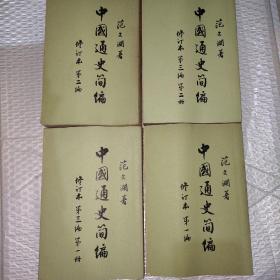 范文澜著
中國通史简编
修订本 第二编
范文澜著
中國通史简编
修订本 第三编 第二册
范文澜著
中國通史简编
修订本 第三编 第一册
范文澜著
中國通史简编
修订本 第一编